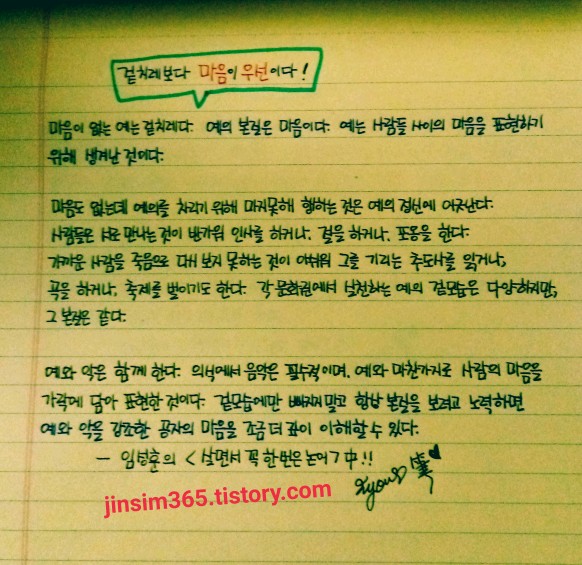 겉치레보다 마음이 우선이다!
마음이 없는 예는 겉치레다. 예의 본질은 마음이다. 예는 사람들 사이의 마음을 표현하기
위해 생겨난 것이다.
마음도 없는데 예의를 차리기 위해 마지못해 행하는 것은 예의 정신에 어긋난다.
사람들은 서로 만나는 것이 반가워 인사를 하거나, 절을 하거나, 포옹을 한다.
가까운 사람을 죽음으로 다시 보지 못하는 것이 아쉬워 그를 기리는 추도사를 읽거나,
곡을 하거나, 축제를 벌이기도 한다. 각 문화권에서 실천하는 예의 겉모습은 다양하지만,
그 본질은 같다.
예와 악은 함께 한다. 의식에서 음악은 필수적이며, 예와 마찬가지로 사람의 마음을
가락에 담아 표현한 것이다. 겉모습에만 빠지지 말고 항상 본질을 보려고 노력하면
예와 악을 강조한 공자의 마음을 조금 더 깊이 이해할 수 있다.
- 임성훈의 <살면서 꼭 한번은 논어> 中!!
jinsim365.tistory.com